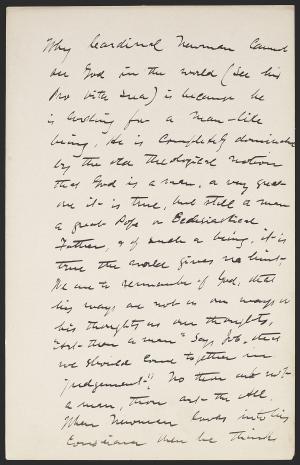 Why Cardinal Newman cannot
see God in the world (see his
Pro Vita Sua) is because he
is looking for a man-like
being. He is completely dominated
by the old theological notion
that God is a man, a very great
one it is true, but still a man
a great Pope or Ecclesiastical
Father, & of such a being, it is
true the world gives no hint.
We are to remember of God, that
his ways are not as our ways or
his thoughts as our thoughts,
"Art thou a man" says Job, "that
we should come together in
judgement." No thou art not
a man, thou art the All.
When Newman looks into his
conscience then he thinks